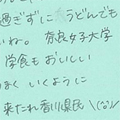 過ぎずに うどんでも
いね。奈良女子大学
学食もおいしい
ほくいくように
来たれ香川県民 \(^o^)/